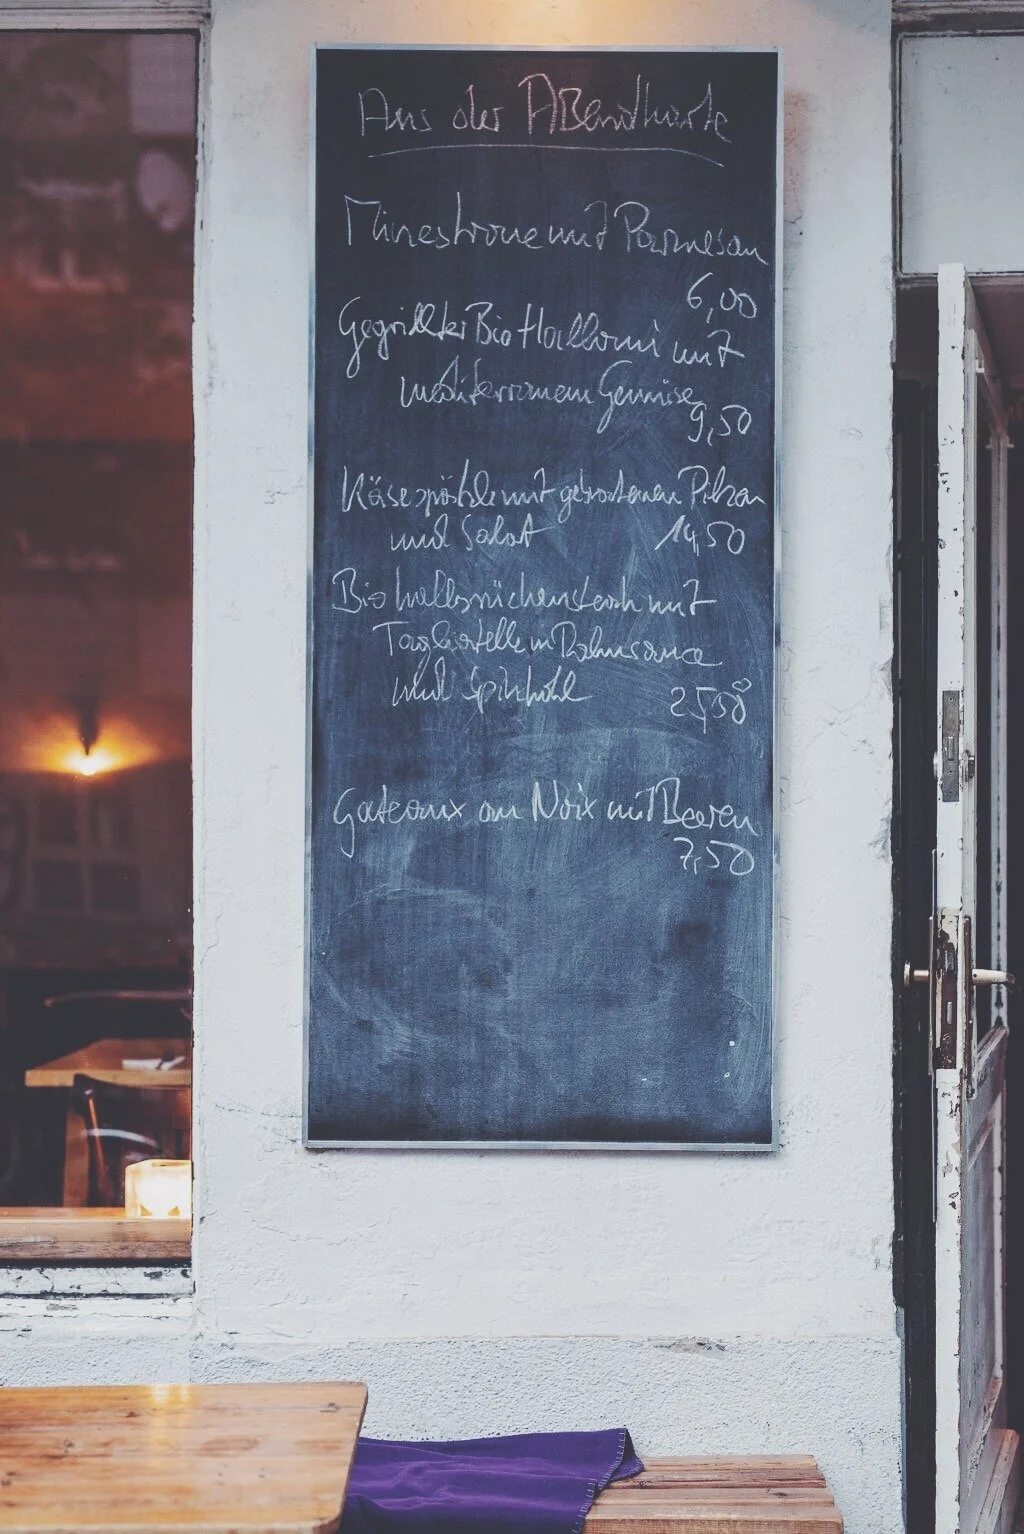 Aus der Abendkarte
Minestrone mit Parmesan
6,00
Gegrillter Bio Halloumi mit
mediterranem Gemüse
9,50
Käsespätzle mit gebratenen Pilzen
und Salat 14,50
Bio kalbsrückensteak mit
Tagliatelle in Rahmsauce
und Spitzkohl
Gateaux au Noix mit Beeren
7,50